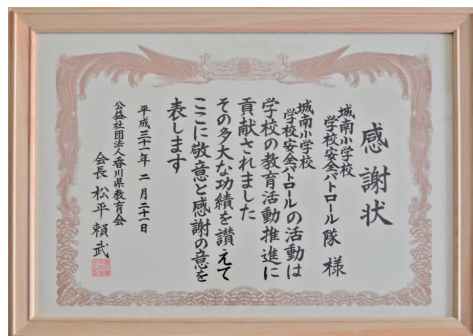 感謝状
城南小学校
学校安全パトロール隊 様
城南小学校
学校安全パトロールの活動は
学校の教育活動推進に
貢献されました
その多大な功績を讃えて
ここに敬意と感謝の意を
表します
平成三十一年 二月二十一日
公益社団法人香川県教育会
会長 松平頼武